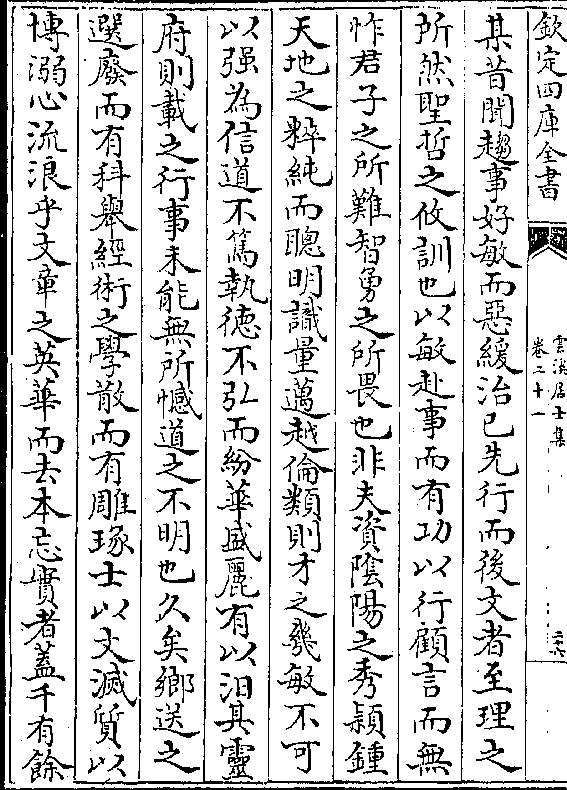 欽定四庫全書
雲溪居士集
卷二十一
二六
某昔聞趨事好敏而惡緩治已先行而後文者至理之
所然聖哲之攸訓也以敏赴事而有功以行顧言而無
怍君子之所難智勇之所畏也非夫資隂陽之秀穎鍾
天地之粹純而聰明識量邁越倫類則才之幾敏不可
以强為信道不篤執德不弘而紛華盛麗有以汨其靈
府則載之行事未能無所憾道之不明也久矣鄉送之
選廢而有科舉經術之學散而有雕琢士以文滅質以
博溺心流浪乎文章之英華而去本忘實者蓋千有餘